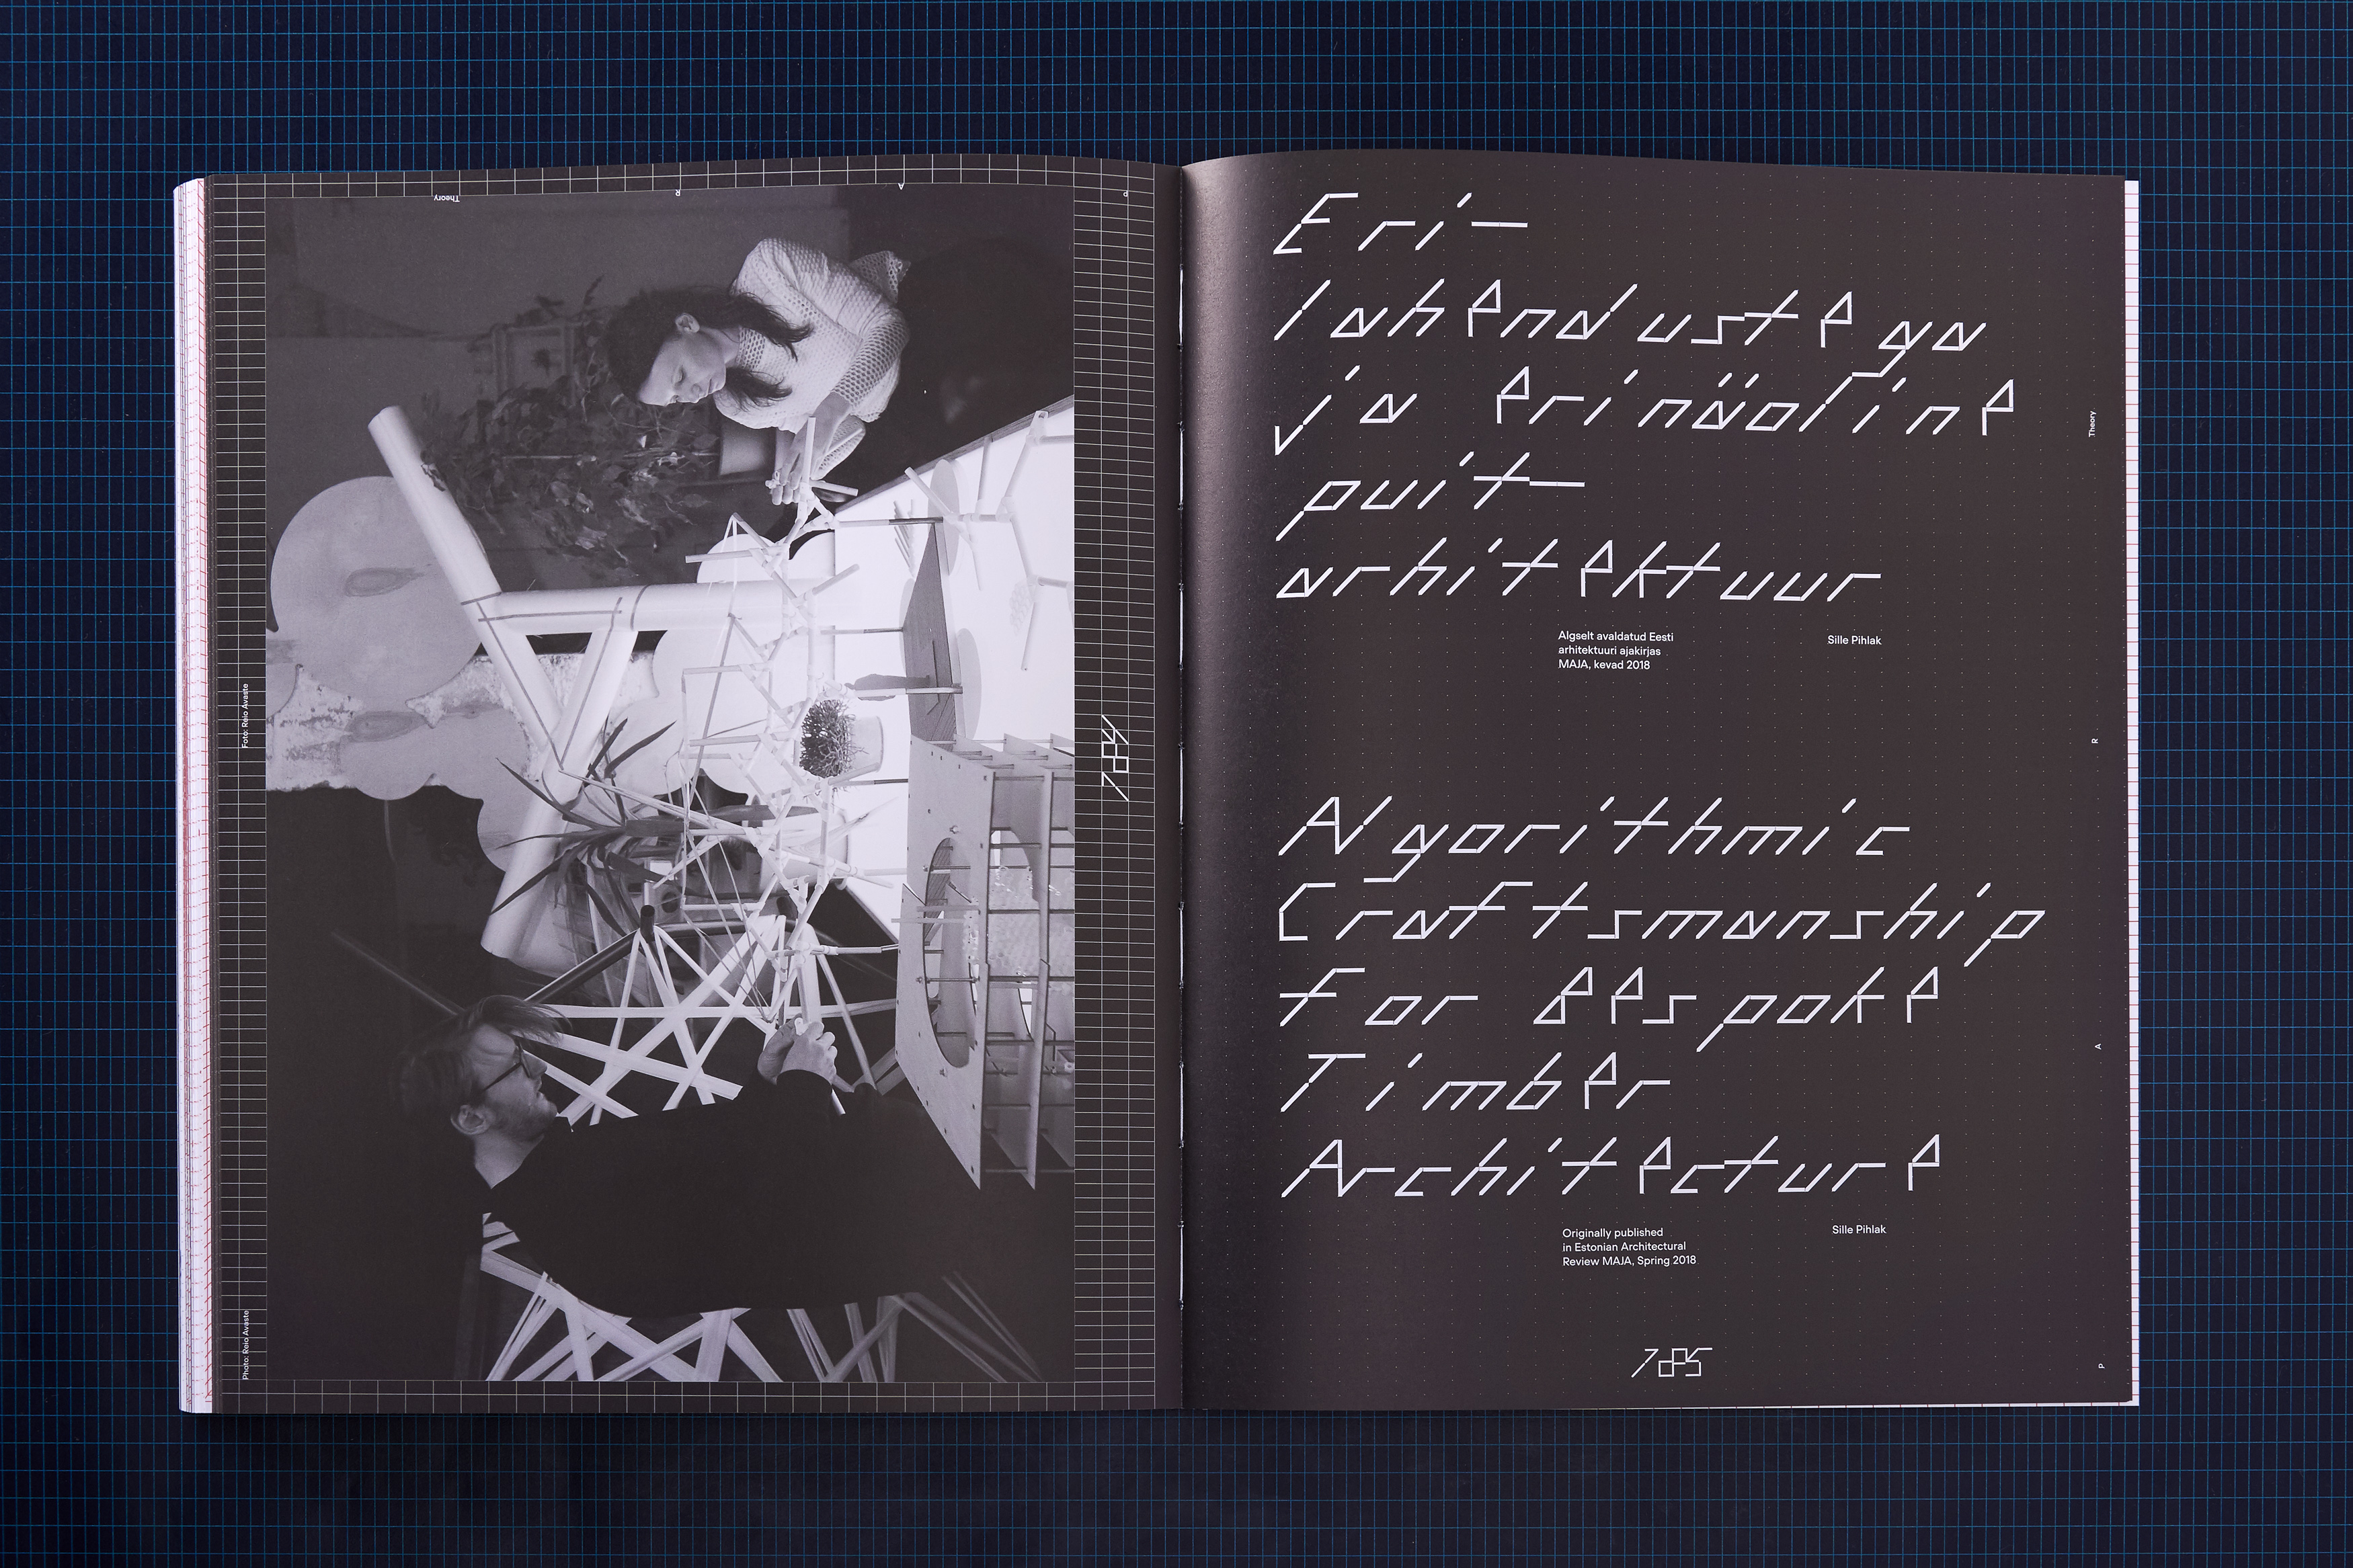 Theory
R
A
P
Foto: Reio Avaste
Photo: Reio Avaste
184
Eri–
lahendustega
ja erinäoline
puit–
arhitektuur
Algselt avaldatud Eesti
arhitektuuri ajakirjas
MAJA, kevad 2018
Sille Pihlak
Algorithmic
Craftsmanship
for Bespoke
Timber
Architecture
Originally published
in Estonian Architectural
Review MAJA, Spring 2018
Sille Pihlak
185
Theory
R
A
P